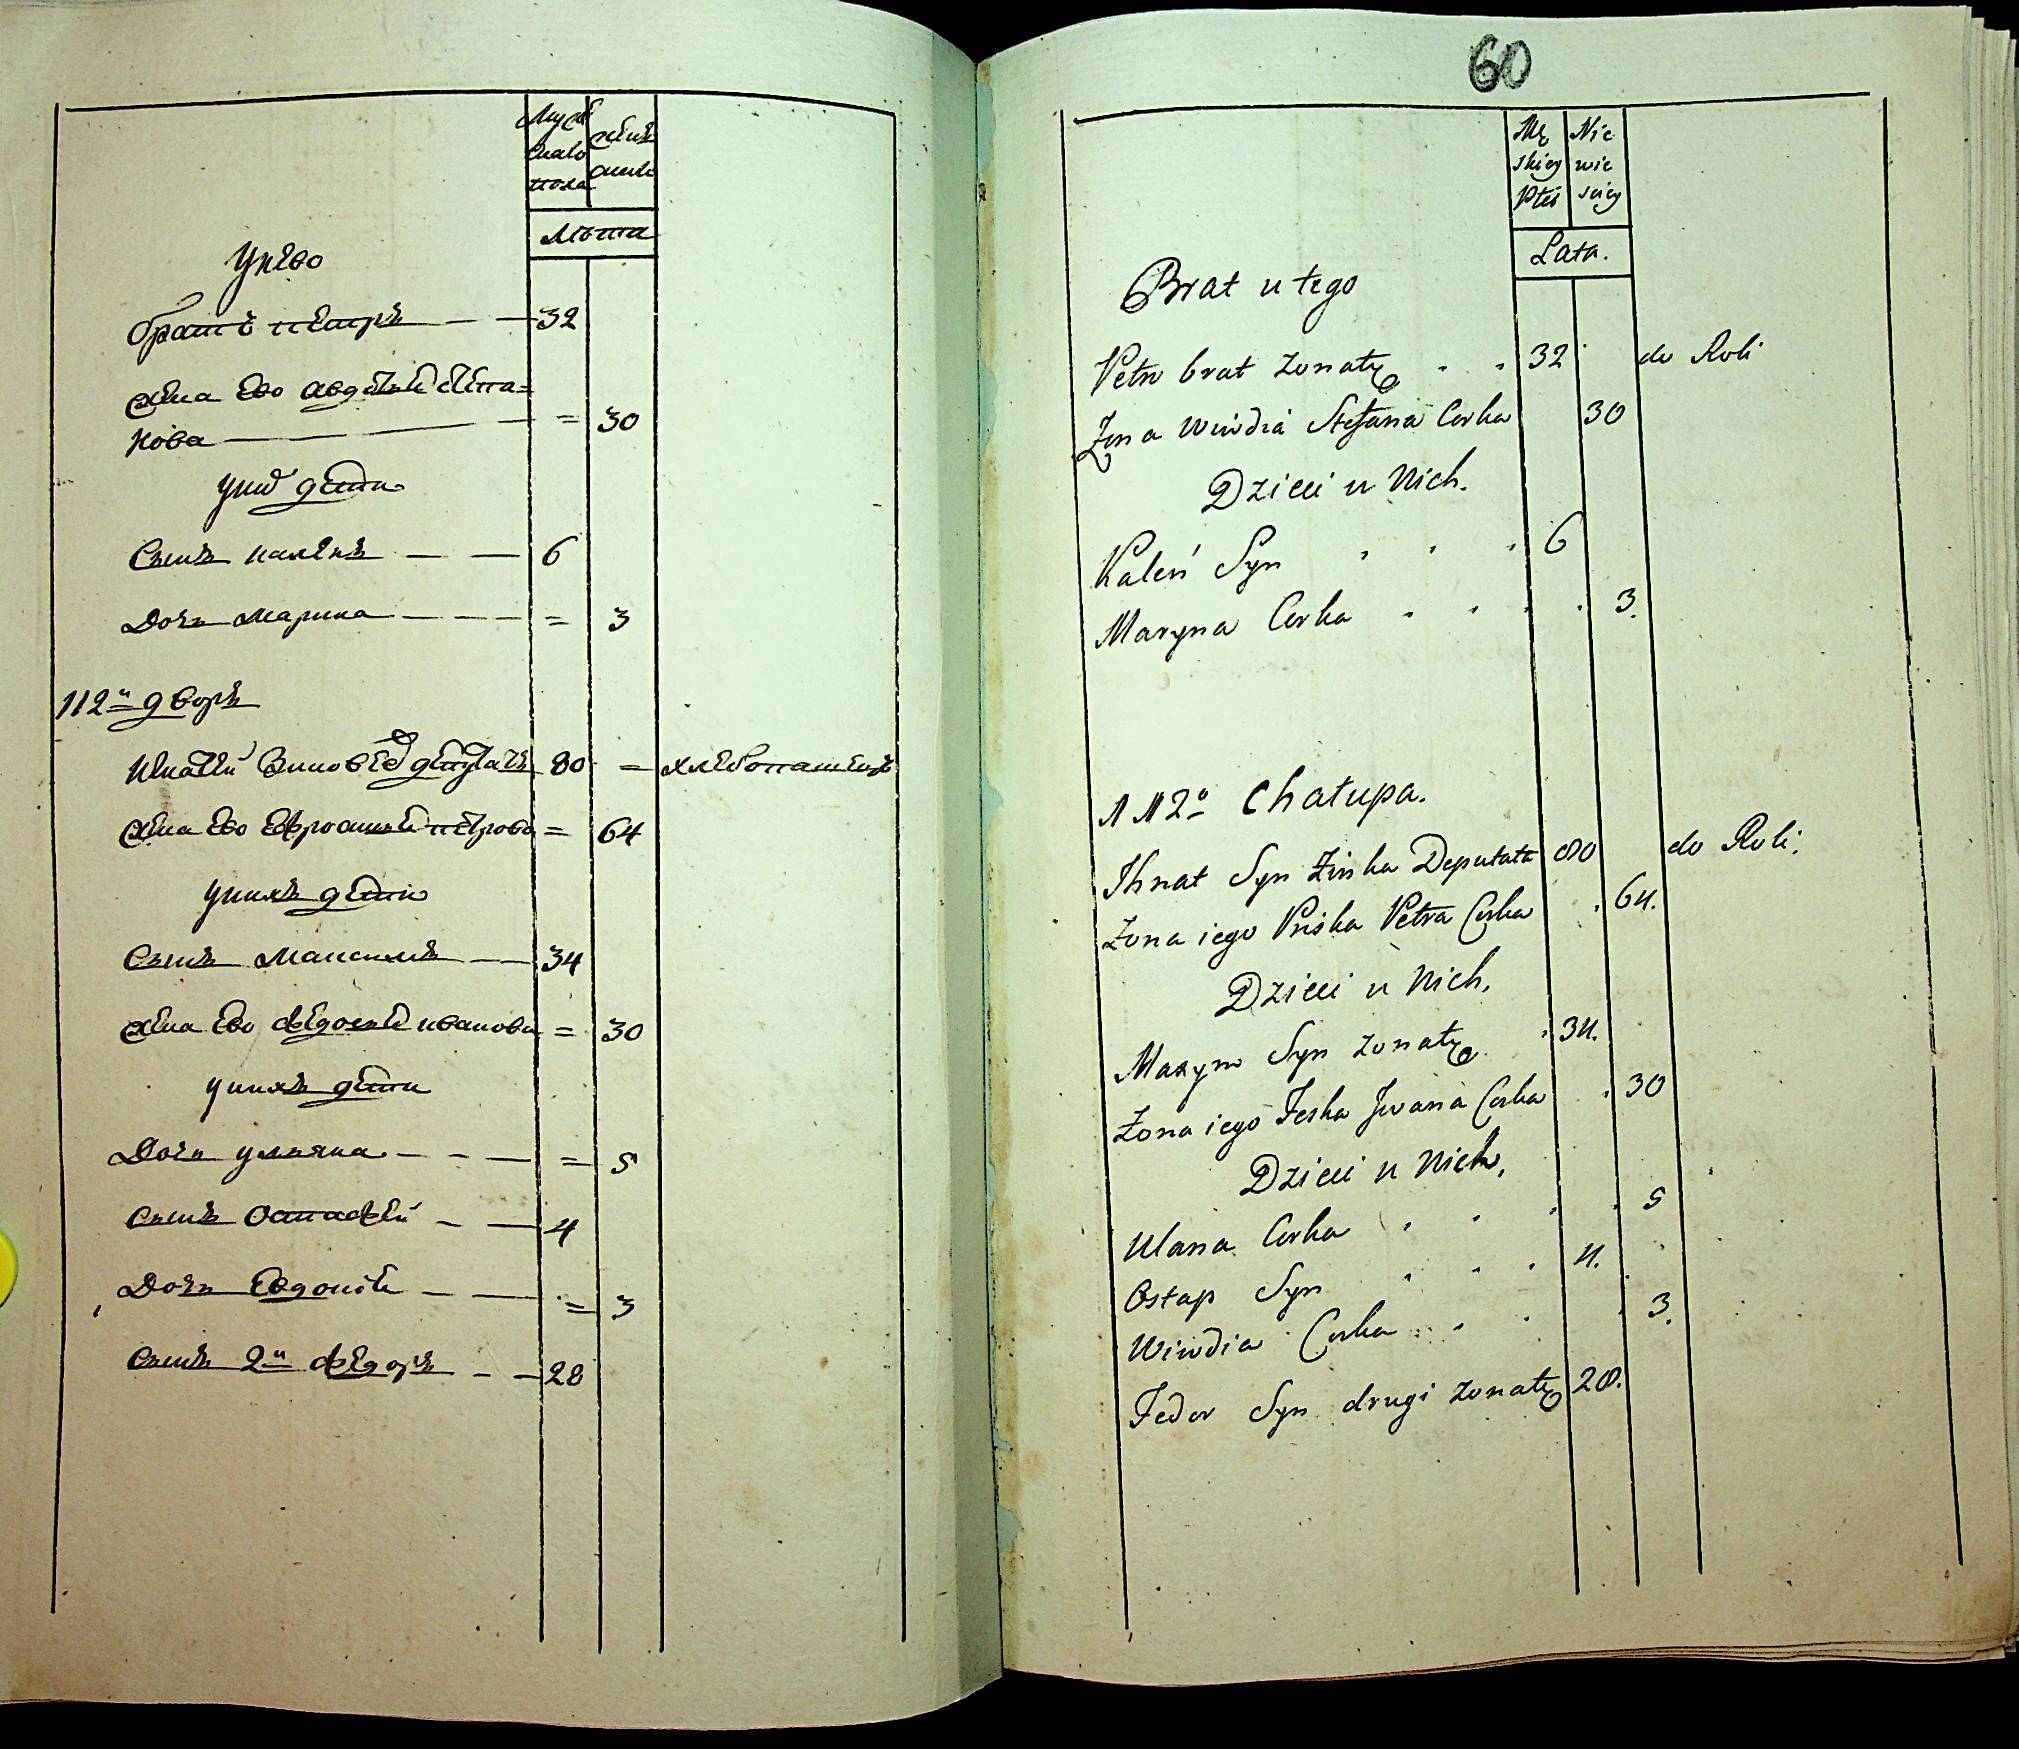 Муж
скаго
пола
жен
скаго
Лѣта
У него
братъ петръ — — 32
жена Его авдотья Степа=
нова — = 30
у них дѣти
Сынъ каленъ — — 6
Дочь Марина — — — = 3
112й дворъ
Игнатей Зиновѣев депутатъ 80 = хлебопашецъ
жена Его Ефросинья петрова = 64
у нихъ дѣти
Сынъ Максимъ — — 34
жена Его федосья иванова = 30
у нихъ дѣти
Дочь ульяна — — — = 5
Сынъ Остафей — — 4
Дочь Евдокия — — = 3
Сынъ 2й федоръ — — 28
60
Mę
skiey
Płci
Nie
wie
sciey
Lata.
Brat u tego
Petro brat żonaty 32 do Roli
Żona Wiwdia Stefana Corka 30
Dzieci u Nich.
Kaleń Syn 6
Maryna Corka 3.
112o Chałupa.
Ihnat Syn Zinka Deputata 80 do Roli.
Żona iego Priśka Petra Corka 64.
Dzieci u Nich.
Maxym Syn żonaty 34.
Żona iego Feśka Jwana Corka 30
Dzieci u Nich.
Ulana Corka 5
Ostap Syn 4.
Wiwdia Corka 3.
Fedor Syn drugi żonaty 28.